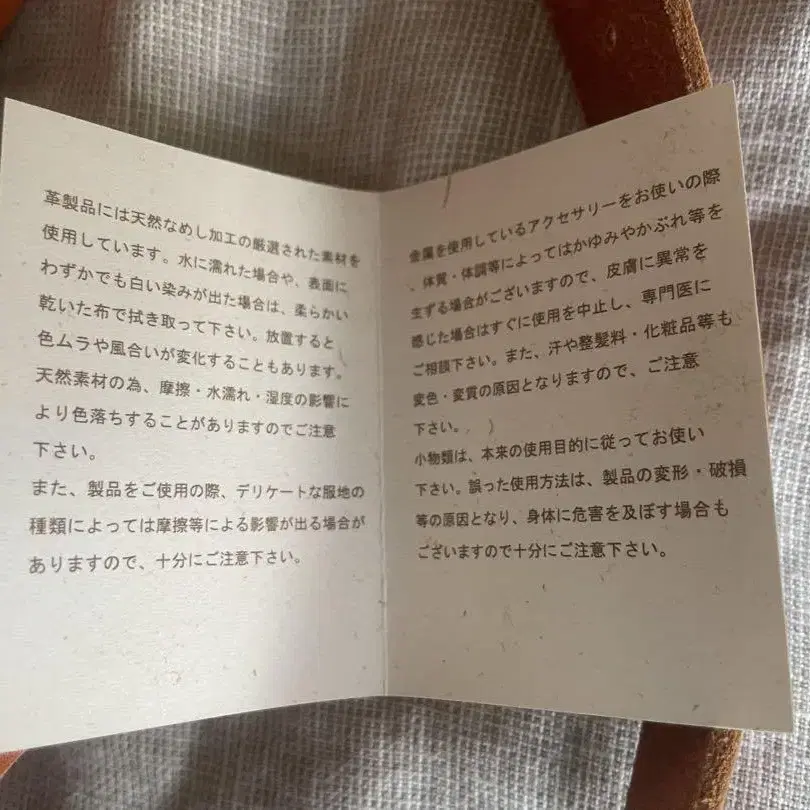 革製品には天然なめし加工の厳選された素材を
使用しています。水に濡れた場合や、表面に
わずかでも白い染みが出た場合は、柔らかい
乾いた布で拭き取って下さい。放置すると
色ムラや風合いが変化することもあります。
天然素材の為、摩擦・水濡れ・湿度の影響に
より色落ちすることがありますのでご注意
下さい。
また、製品をご使用の際、デリケートな服地の
種類によっては摩擦等による影響が出る場合が
ありますので、十分にご注意下さい。
金属を使用しているアクセサリーをお使いの際
、体質・体調等によってはかゆみやかぶれ等を
生ずる場合がございますので、皮膚に異常を
感じた場合はすぐに使用を中止し、専門医に
ご相談下さい。また、汗や整髪料・化粧品等も
変色・変質の原因となりますので、ご注意
下さい。
小物類は、本来の使用目的に従ってお使い
下さい。誤った使用方法は、製品の変形・破損
等の原因となり、身体に危害を及ぼす場合も
ございますので十分にご注意下さい。